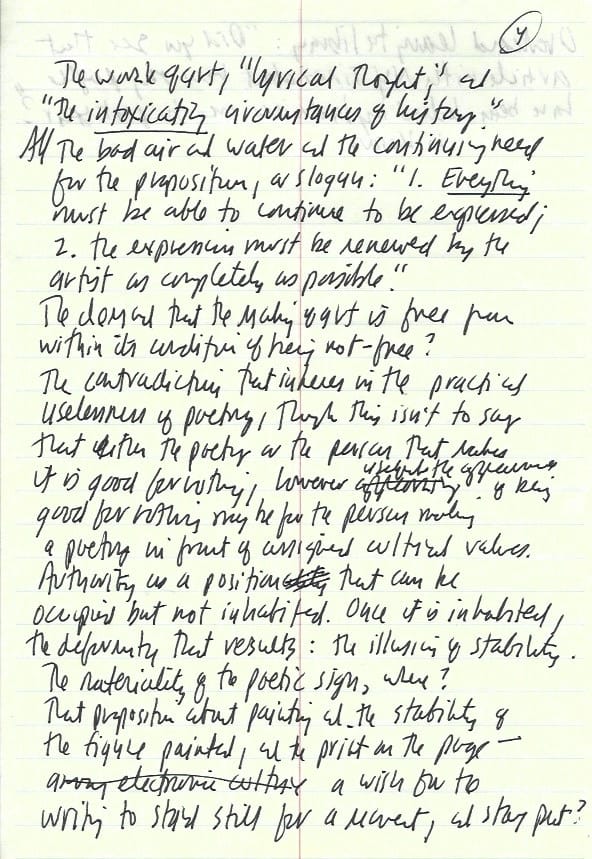 4
The work of art, "lyrical thought," and
"the intoxicating circumstances of history."
All the bad air and water and the continuing need
for the proposition, as slogan: "1. Everything
must be able to continue to be expressed;
2. the expression must be renewed by the
artist as completely as possible."
The demand that the making of art is free from
within its condition of being not-free?
The contradiction that inheres in the practical
uselessness of poetry, though this isn't to say
that either the poetry or the person that makes
it is good for nothing, however useful the appearance of being
good for nothing may be for the person making
a poetry in front of assigned cultural values.
Authority as a position that can be
occupied but not inhabited. Once it is inhabited,
the deformity that results: the illusion of stability.
The materiality of the poetic sign, where?
That proposition about painting and the stability of
the figure painted, and the print on the page —
among electronic culture a wish for the
writing to stand still for a moment, and stay put?